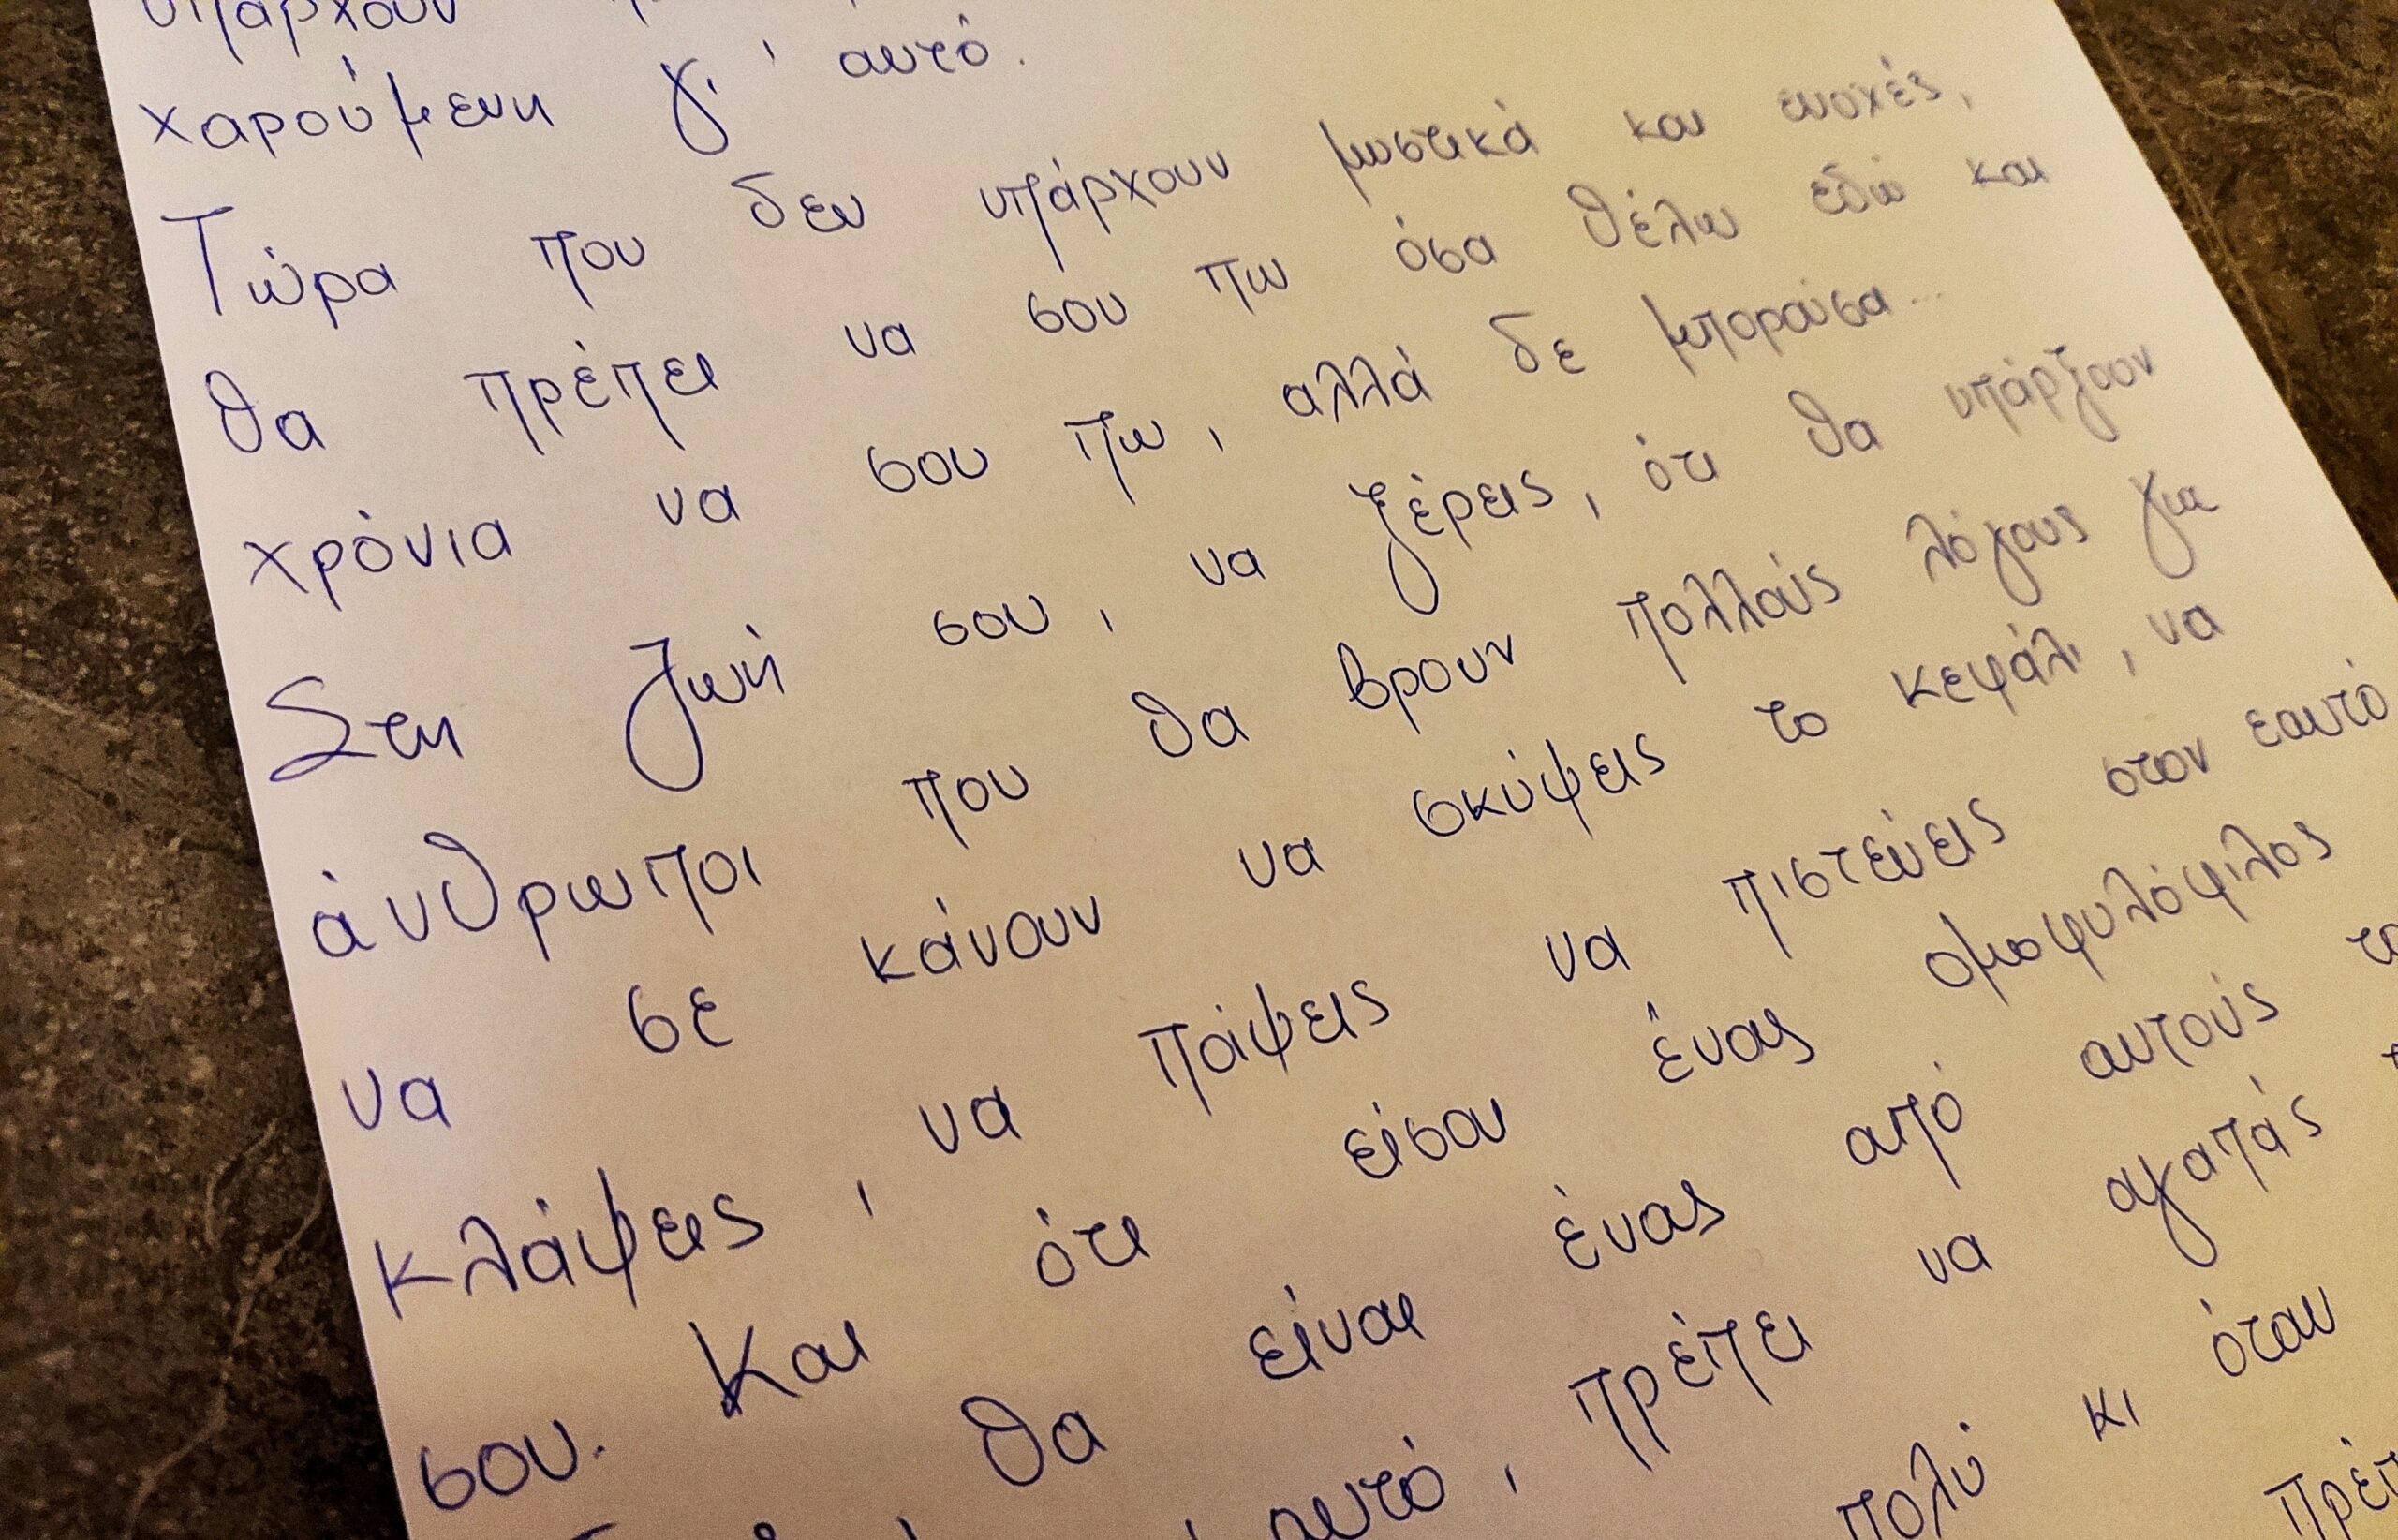 υπάρχουν
χαρούμενη γι ' αυτό.
Τώρα που δεν υπάρχουν μυστικά και ενοχές,
θα πρέπει να σου πω όσα θέλω εδώ και
χρόνια να σου πω, αλλά δε μπορούσα...
Στη ζωή σου, να ξέρεις, ότι θα υπάρξουν
άνθρωποι που θα βρουν πολλούς λόγους για
να σε κάνουν να σκύψεις το κεφάλι, να
κλάψεις, να πάψεις να πιστεύεις στον εαυτό
σου. Και ότι είσου ένας ομοφυλόφιλος
θα είναι ένας από αυτούς
αυτό, πρέπει να αγαπάς
πολύ κι όταν
πρέπ